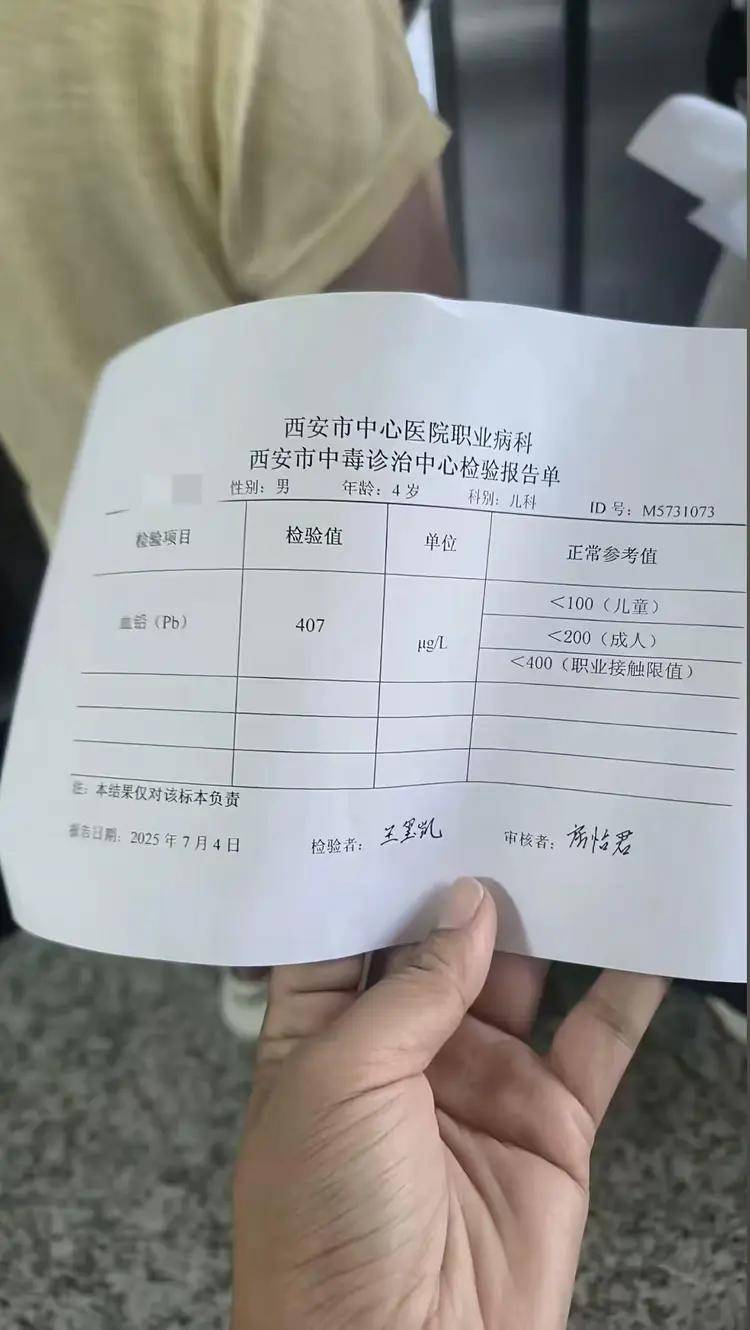 西安市中心医院职业病科
西安市中毒诊治中心检验报告单
性别：男 年龄：4 岁 科别：儿科 ID 号：M5731073
检验项目 检验值 单位 正常参考值
血铅（Pb） 407 μg/L <100（儿童）
<200（成人）
<400（职业接触限值）
注：本结果仅对该标本负责
报告日期：2025 年 7 月 4 日 检验者： 审核者：